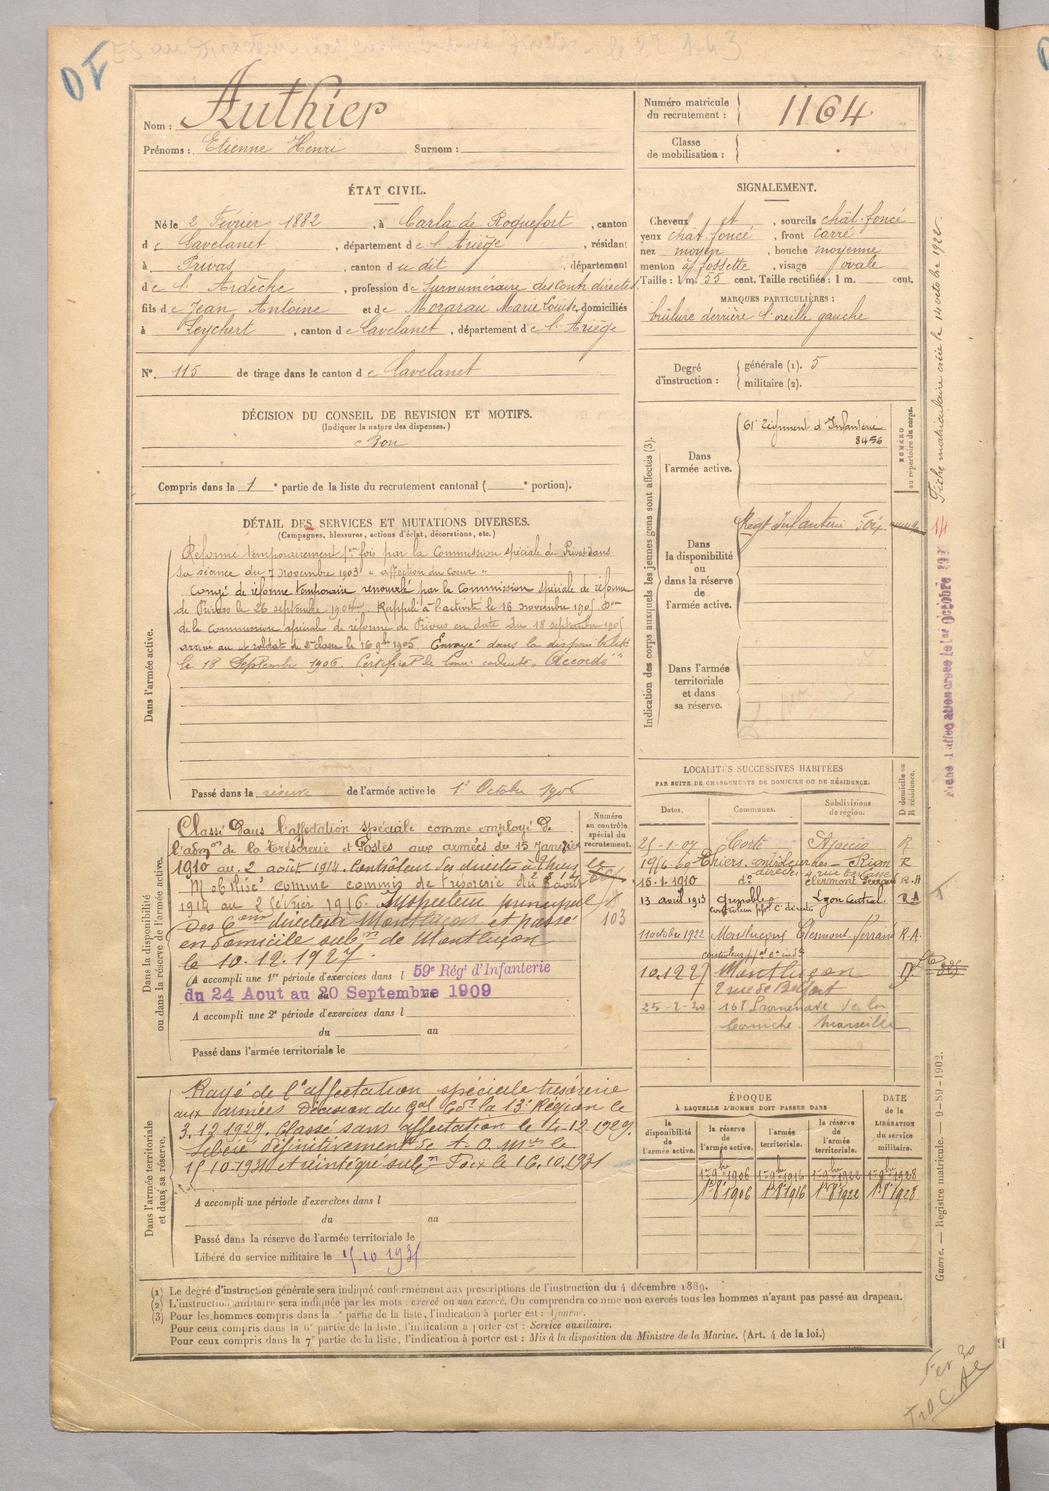 Nom : Authier
Prénoms : Etienne Henri Surnom :
Numéro matricule du recrutement : 1164
Classe de mobilisation :
ÉTAT CIVIL.
Né le 2 Février 1882, à Carla de Roquefort, canton
de Lavelanet, département de l'Ariège, résidant
à Privas, canton du dit, département
de l'Ardèche, profession de Surnuméraire des Contr. directes
fils de Jean Antoine et de Marie Louise, domiciliés
à Leychert, canton de Lavelanet, département de l'Ariège
N°. 115 de tirage dans le canton de Lavelanet
SIGNALEMENT.
Cheveux et, sourcils chât. foncé
yeux chât. foncé, front carré
nez moyen, bouche moyenne
menton à fossette, visage ovale
Taille : 1 m. 55 cent. Taille rectifiée : 1 m. cent.
MARQUES PARTICULIÈRES :
brûlure derrière l'oreille gauche
Degré d'instruction : générale (1). 5
militaire (2).
DÉCISION DU CONSEIL DE REVISION ET MOTIFS.
(Indiquer la nature des dispenses.)
Bon
Compris dans la 1e partie de la liste du recrutement cantonal ( e portion).
DÉTAIL DES SERVICES ET MUTATIONS DIVERSES.
(Campagnes, blessures, actions d'éclat, décorations, etc.)
Dans l'armée active.
Réformé temporairement 1ère fois par la Commission spéciale de Privas dans
sa séance du 7 novembre 1903 "affection du Cœur"
Congé de réforme temporaire renouvelé par la Commission spéciale de réforme
de Privas le 26 septembre 1904. Rappelé à l'activité le 16 novembre 1905
de la commission spéciale de réforme de Privas en date du 18 septembre 1905
arrivé au soldat de 2e classe le 16 9bre 1905. Envoyé dans la disponibilité
le 18 Septembre 1906. Certificat de bonne conduite "Accordé"
Passé dans la réserve de l'armée active le 1er Octobre 1906
Indication des corps auxquels les jeunes gens sont affectés (3).
Dans l'armée active.
61e Régiment d'Infanterie
8456
NUMÉRO au répertoire du corps.
Dans la disponibilité ou dans la réserve de l'armée active.
Régt Infanterie Foix
Dans l'armée territoriale et dans sa réserve.
Dans la disponibilité ou dans la réserve de l'armée active.
Classé dans l'affectation spéciale comme employé de
l'admon de la Trésorerie et Postes aux armées du 15 Janvier
1910 au 2 août 1914. Contrôleur des directes à Thiers
Mobilisé comme commis de trésorerie du 2 août
1914 au 2 février 1916. Inspecteur principal
des Com directes à Montluçon et passé
en domicile subon de Montluçon
le 10.12.1927.
Numéro au contrôle spécial du recrutement.
103
A accompli une 1re période d'exercices dans l 59e Régt d'Infanterie
du 24 Aout au 20 Septembre 1909
A accompli une 2e période d'exercices dans l
du au
Passé dans l'armée territoriale le
LOCALITÉS SUCCESSIVES HABITÉES
PAR SUITE DE CHANGEMENTS DE DOMICILE OU DE RÉSIDENCE.
Dates. Communes. Subdivisions de région. D domicile ou R résidence.
25-1-07 Corte Ajaccio R
Thiers, contrôleur des directes Riom R
15-1-1910 do Clermont Ferrand R.A
13 avril 1913 Grenoble Lyon Central R A
11 octobre 1922 Montluçon Clermont-Ferrand R.A.
10.12.27 Montluçon D
2 rue de Belfort
25-2-30 Promenade de la
Corniche Marseille
Dans l'armée territoriale et dans sa réserve.
Rayé de l'affectation spéciale trésorerie
aux armées décision du gal Cdt la 13e Région le
3.12.1929. Classé sans affectation le 14-12-1929.
Libéré définitivement de s. o. mres le
15.10.1931 et réintégré subon Foix le 16.10.1931
A accompli une période d'exercices dans l
du au
Passé dans la réserve de l'armée territoriale le
Libéré du service militaire le 15.10.1931
ÉPOQUE
À LAQUELLE L'HOMME DOIT PASSER DANS
la disponibilité de l'armée active. la réserve de l'armée active. l'armée territoriale. la réserve de l'armée territoriale.
DATE de la LIBÉRATION du service militaire.
1er 9bre 1906 1er 9bre 1916 1er 9bre 1922 1er 9bre 1928
1er 8bre 1906 1er 8bre 1916 1er 8bre 1922 1er 8bre 1928
(1) Le degré d'instruction générale sera indiqué conformément aux prescriptions de l'instruction du 4 décembre 1889.
(2) L'instruction militaire sera indiquée par les mots : exercé ou non exercé. On comprendra comme non exercés tous les hommes n'ayant pas passé au drapeau.
(3) Pour les hommes compris dans la partie de la liste, l'indication à porter est :
Pour ceux compris dans la 6e partie de la liste, l'indication à porter est : Service auxiliaire.
Pour ceux compris dans la 7e partie de la liste, l'indication à porter est : Mis à la disposition du Ministre de la Marine. (Art. 4 de la loi.)
Fiche matriculaire créée le 14 octobre 1922.
Guerre. — Registre matricule. — 9-89-1902.